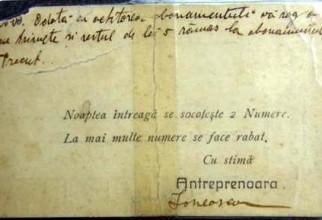 Odată cu achitarea abonamentului vă rog a
și restul de lei 5 rămas la abonamentul
trecut.
Noaptea întreagă se socotește 2 Numere.
La mai multe numere se face rabat.
Cu stimă
Antreprenoara
Ionescu